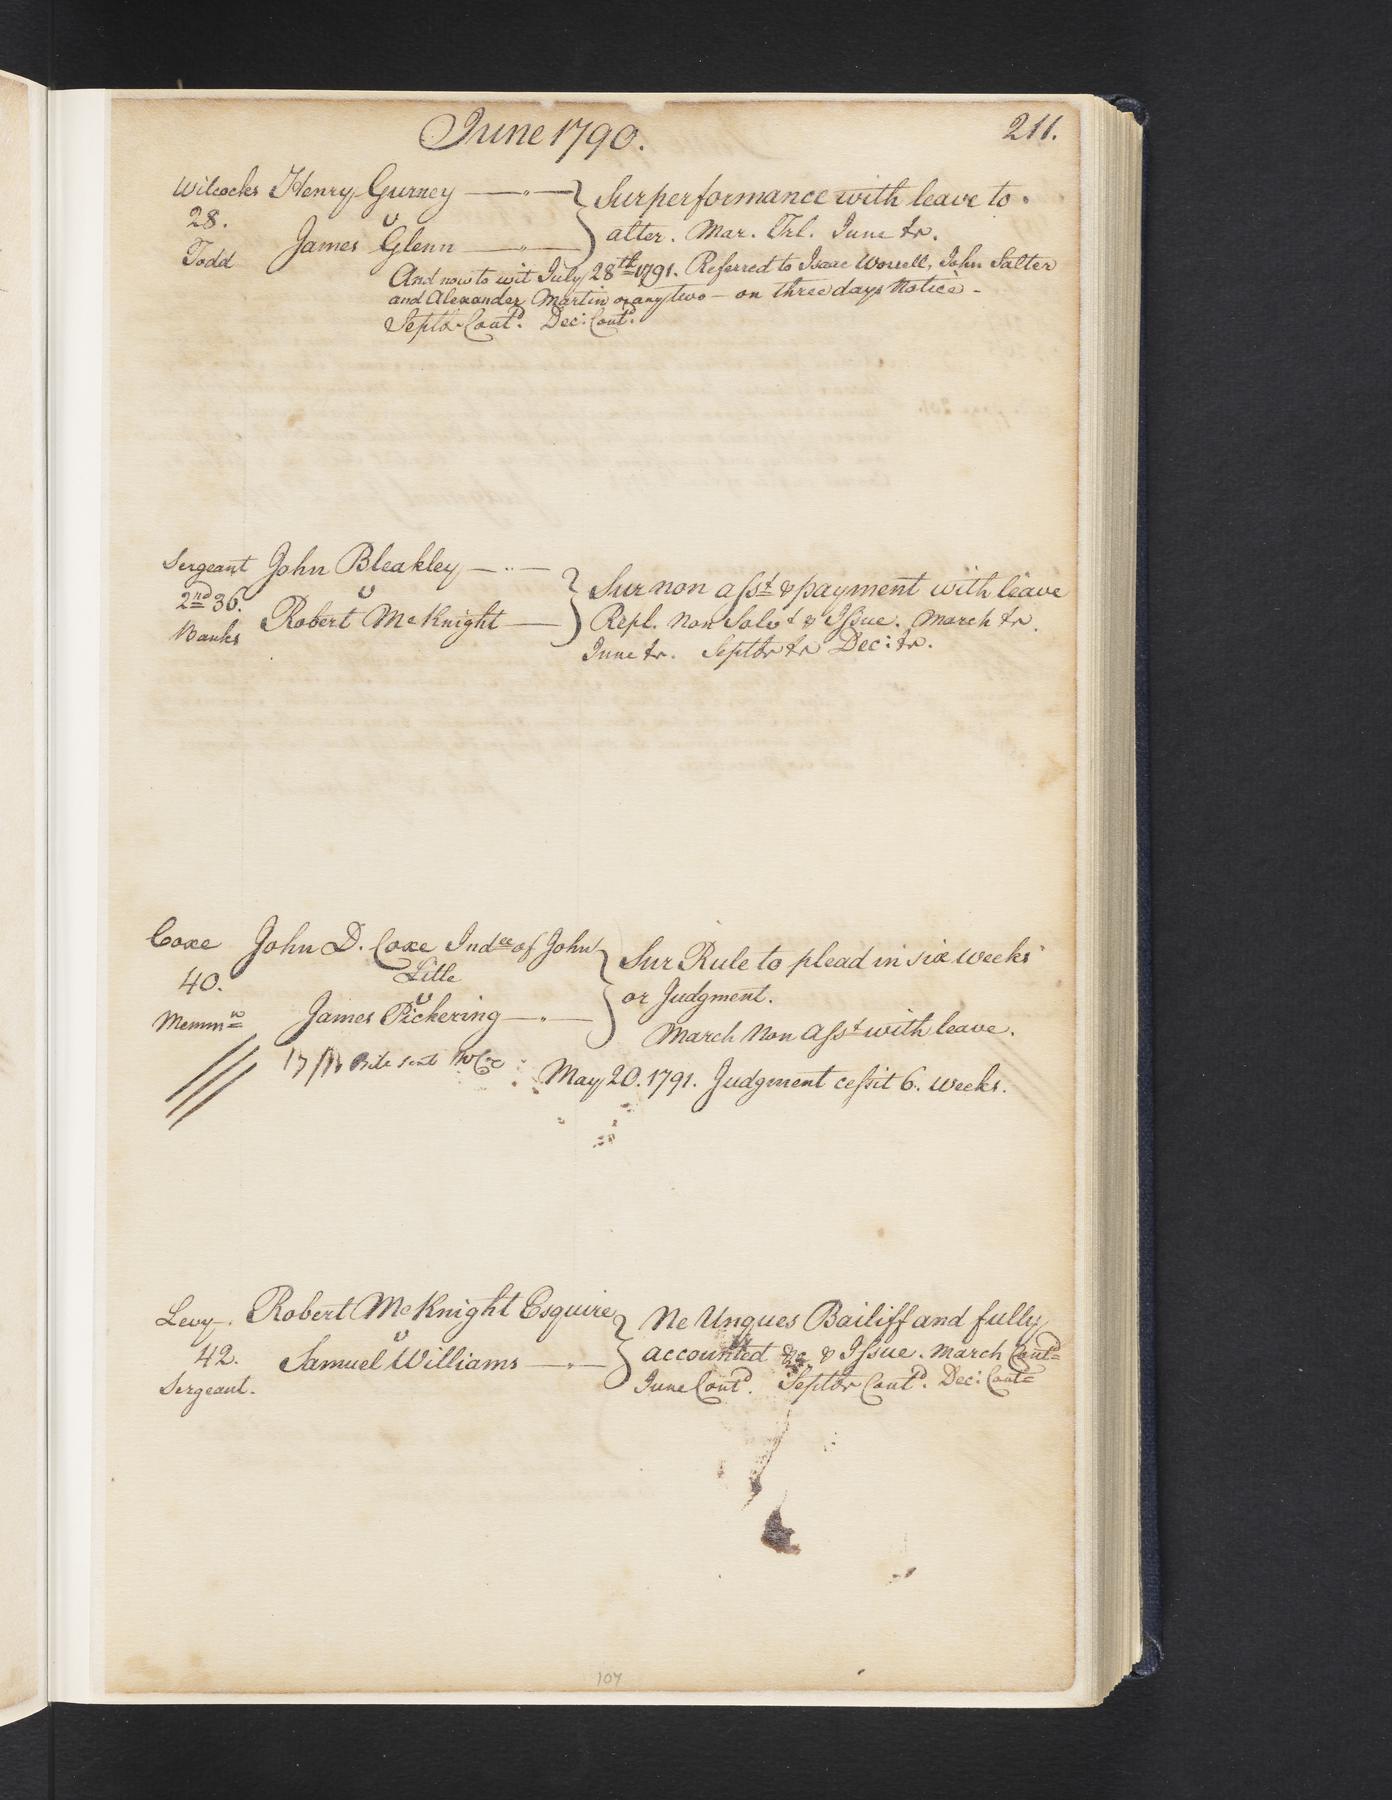 June 1790.
211.
Wilcocks Henry Gurney
28. v
Todd James Glenn
Sur performance with leave to
alter. Mar. Trl. June tr.
And now to wit July 28th 1791. Referred to Isaac Worrell, John Salter
and Alexander Martin or any two - on three days Notice -
Septr. Contd. Dec: Contd.
Sergeant John Bleakley
2nd 36. v
Banks Robert McKnight
Sur non asst & payment with leave
Repl. Non Solvt & Issue. March tr.
June tr. Septbr tr Dec: tr.
Coxe John D. Coxe Indee of John
Litle
40. v
Memmr James Pickering
Sur Rule to plead in six weeks
or Judgment.
March Non Asst with leave.
May 20. 1791. Judgment cessit 6. weeks.
Levy. Robert McKnight Esquire
42. v
Sergeant. Samuel Williams
Ne Unques Bailiff and fully
accounted &c & Issue. March Contd
June Contd. Septbr Contd. Dec: Contd
107